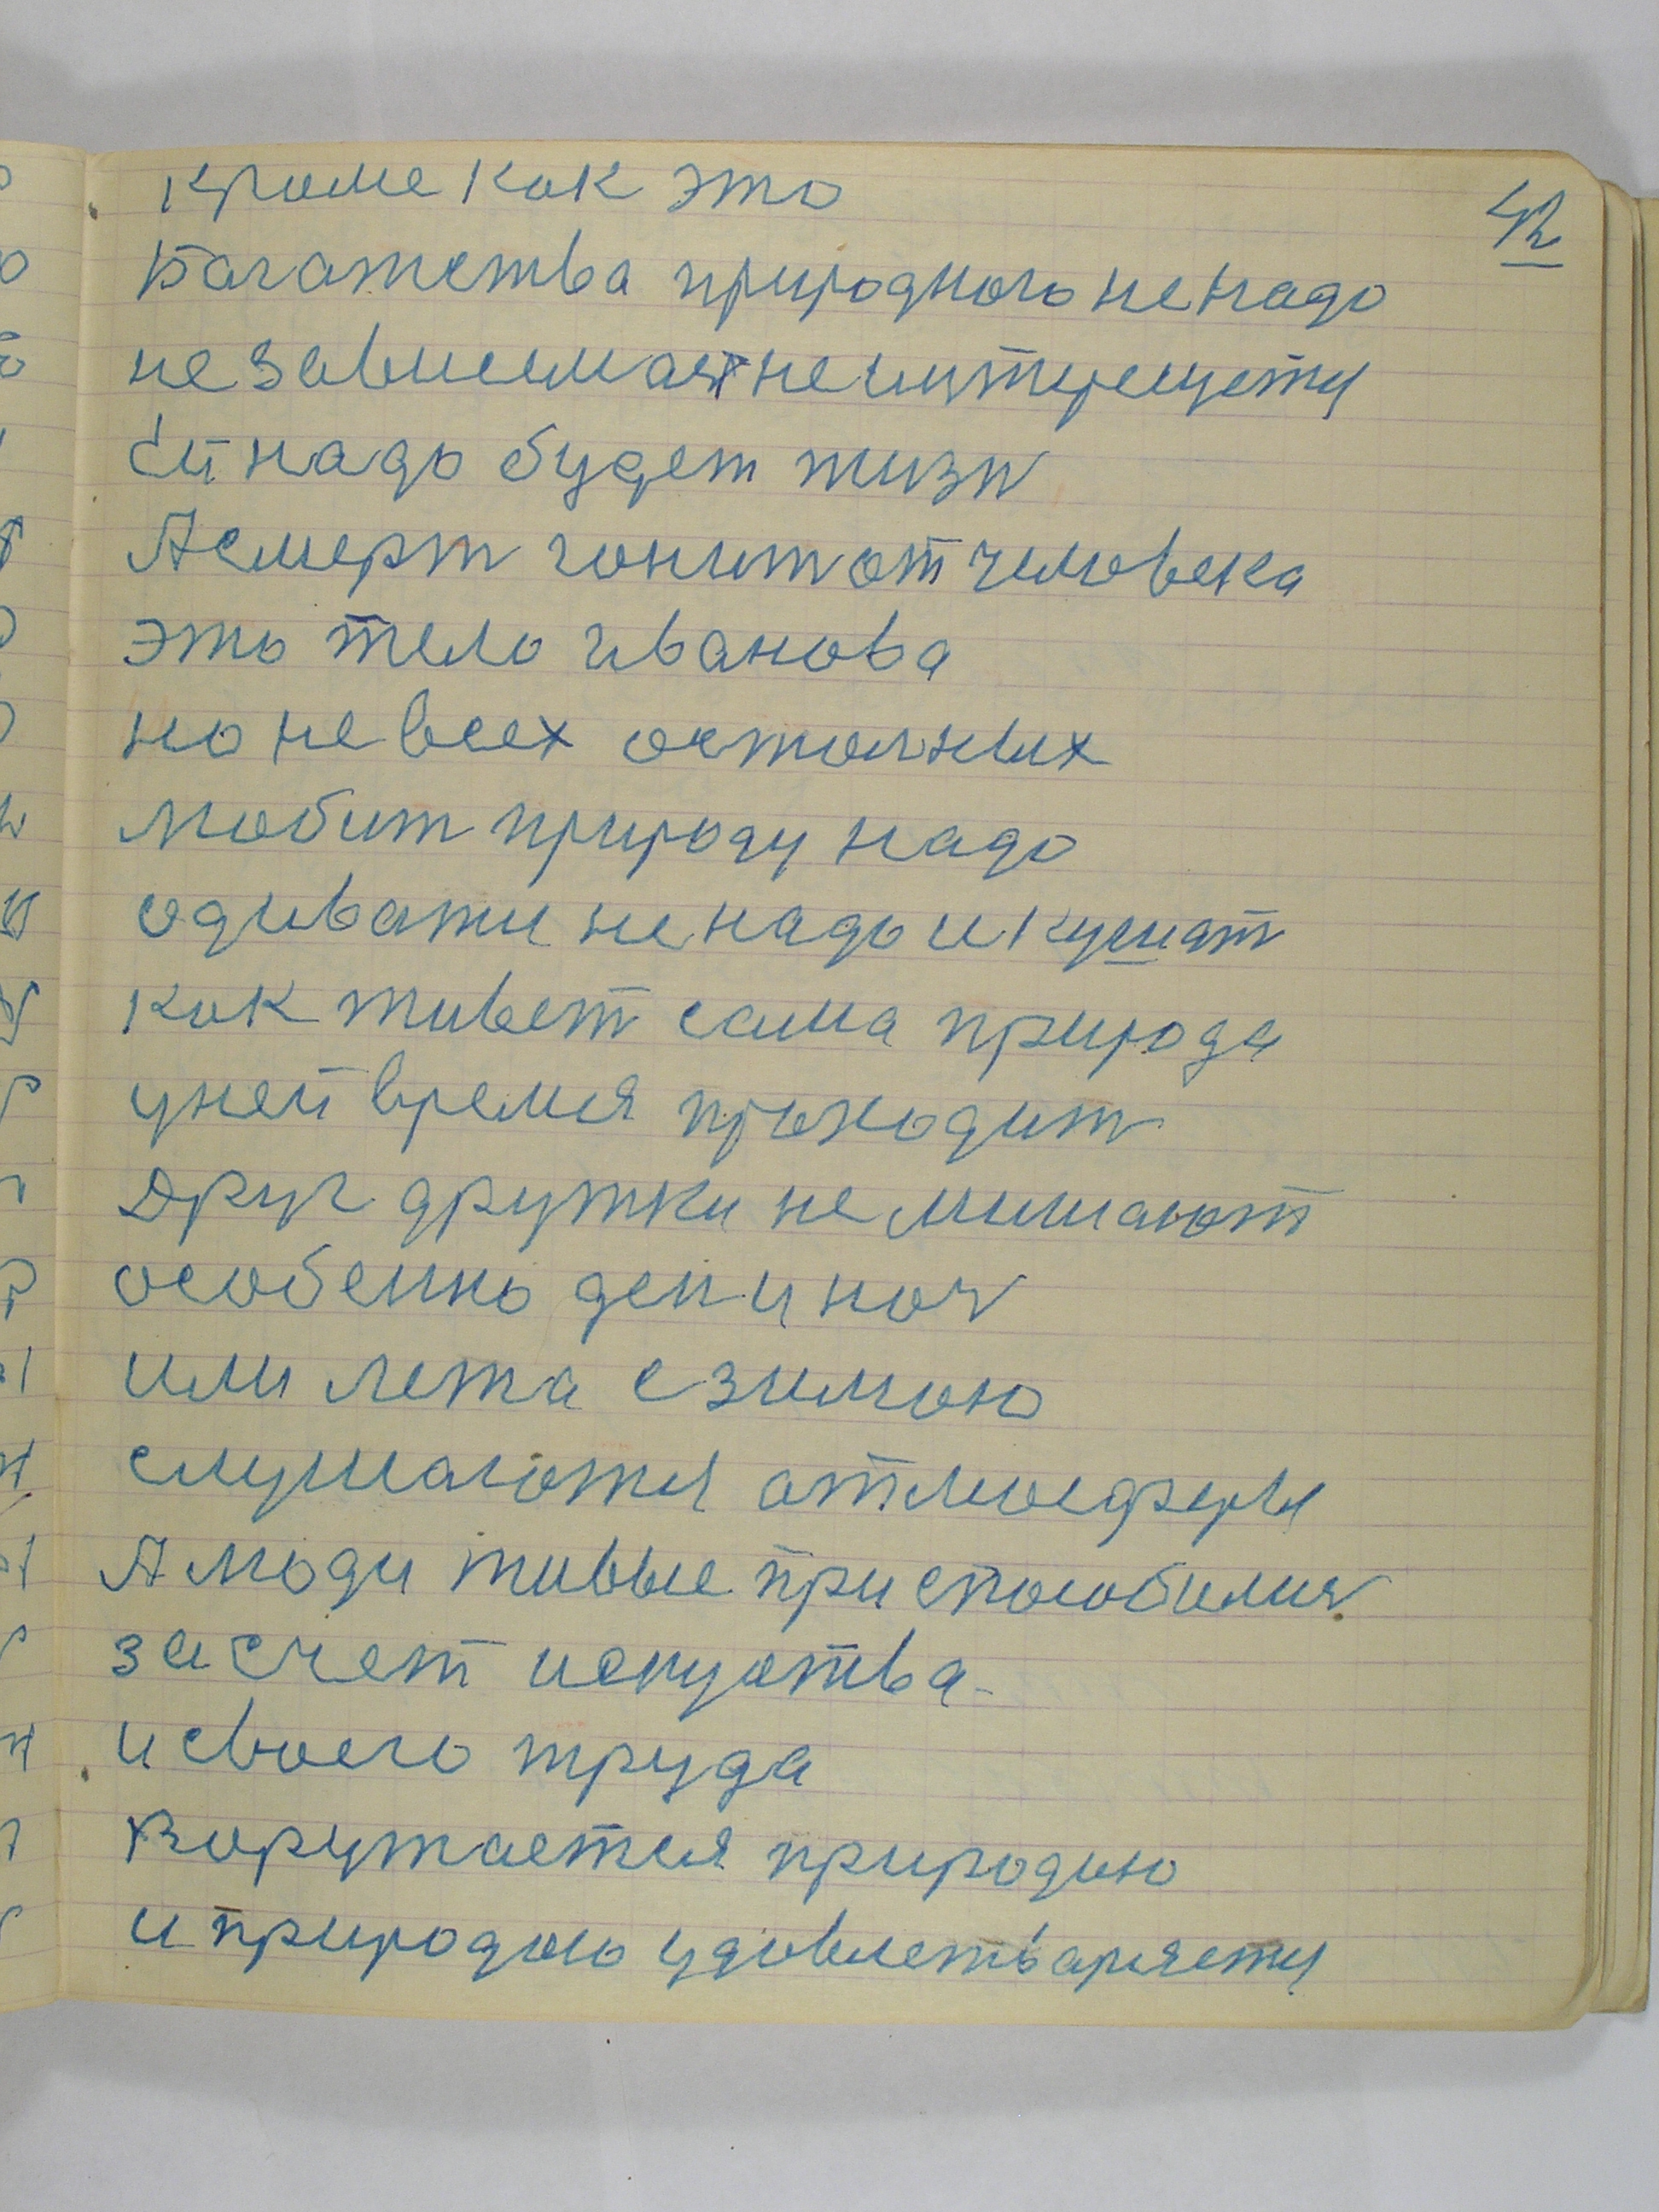 42
кроме как это
Багатства природного не надо
не зависимая не интиресуется
Ей надо будет жизн
А смерт гонит от человека
это тело иванова
но не всех осталних
любит природу надо
одиватся не надо и кушат
как живет сама природа
у ней время проходит
Друг дружки не мишают
особенно ден и ноч
или лета с зимою
слушаются атмосферы
А люди живые приспособилис
за счет искуства
и своего труда
Воружается природою
и природою удовлетваряется